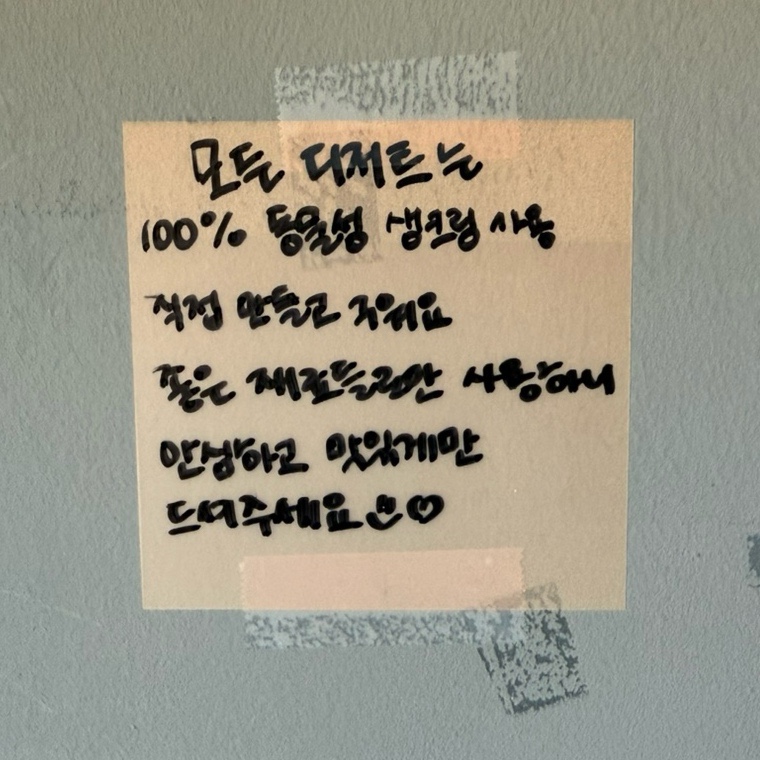 모든 디저트는
100% 동물성 생크림 사용
직접 만들고 구워요
좋은 재료들로만 사용하니
안심하고 맛있게만
드셔주세요